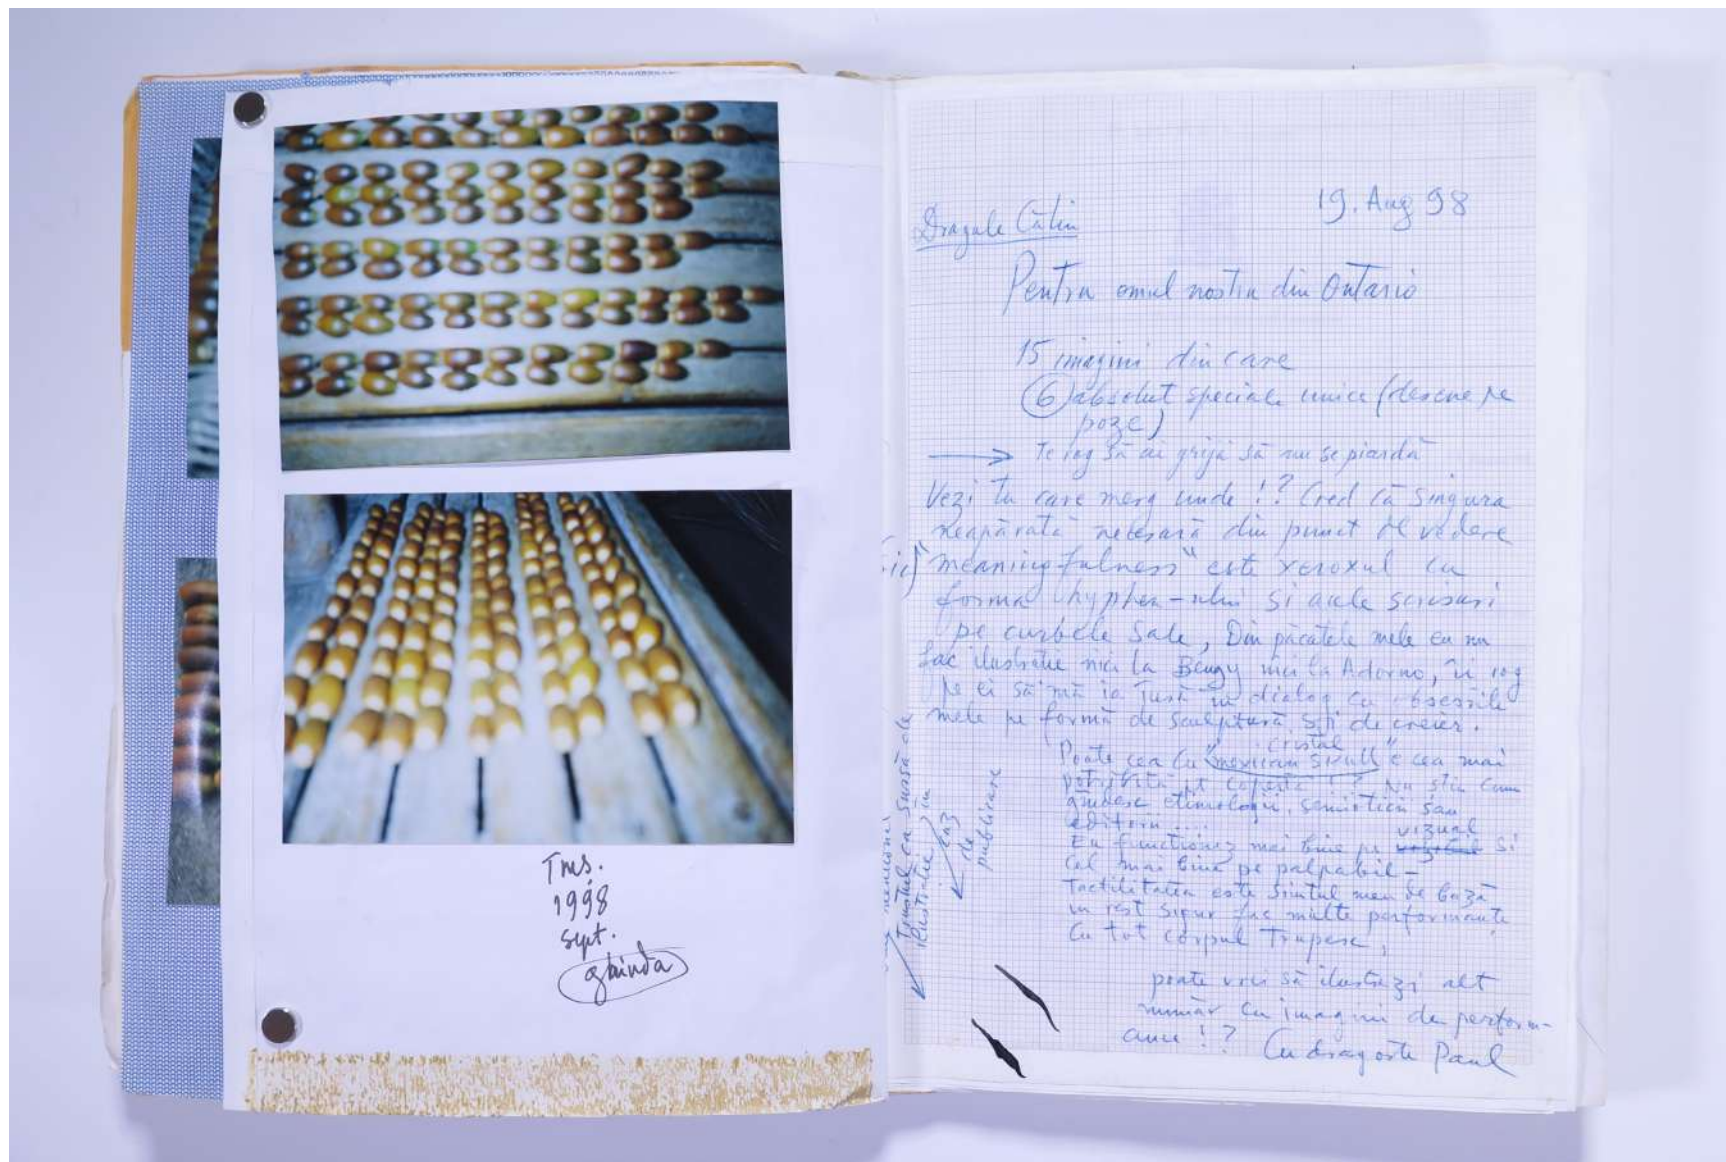 Tmș.
1998
sept.
ghinda
19. Aug 98
Dragule Călin
Pentru omul nostru din Ontario
15 imagini din care
6 absolut speciale unice (desene pe
poze)
Te rog să ai grijă să nu se piardă
Vezi tu care merg unde !? Cred că singura
neapărată necesară din punct de vedere
"meaningfulness" este xeroxul cu
forma hyphen-ului și acele scrisuri
pe curbele sale, Din păcatele mele eu nu
fac ilustrație nici la Beugy nici la Adorno, îi rog
pe ei să mă ia just în dialog cu obsesiile
mele pe formă de sculptură și de creier.
cristal
Poate cea cu "mexican skull" e cea mai
potrivită pt copertă !? Nu știu cum
gândesc etimologii, semiotică sau
editorii ....
vizual
Eu funcționez mai bine pe și
cel mai bine pe palpabil -
Tactilitatea este simțul meu de bază
în rest sigur fac multe performanțe
Cu tot corpul trupesc,
poate vrei să ilustrezi alt
număr cu imagini de perform-
ance !? Cu dragoste Paul
menționez
Timotei ca sursă de
ilustrație, în
caz
de
publicare